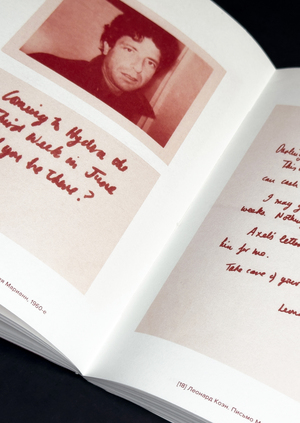 Coming to Hydra the
Third Week in June
you be there?
Марианн, 1960-е
This
can
I may
weeks. Nothing
Axel's letter
him for me.
Take care of your
Leon
[18] Леонард Коэн. Письмо М